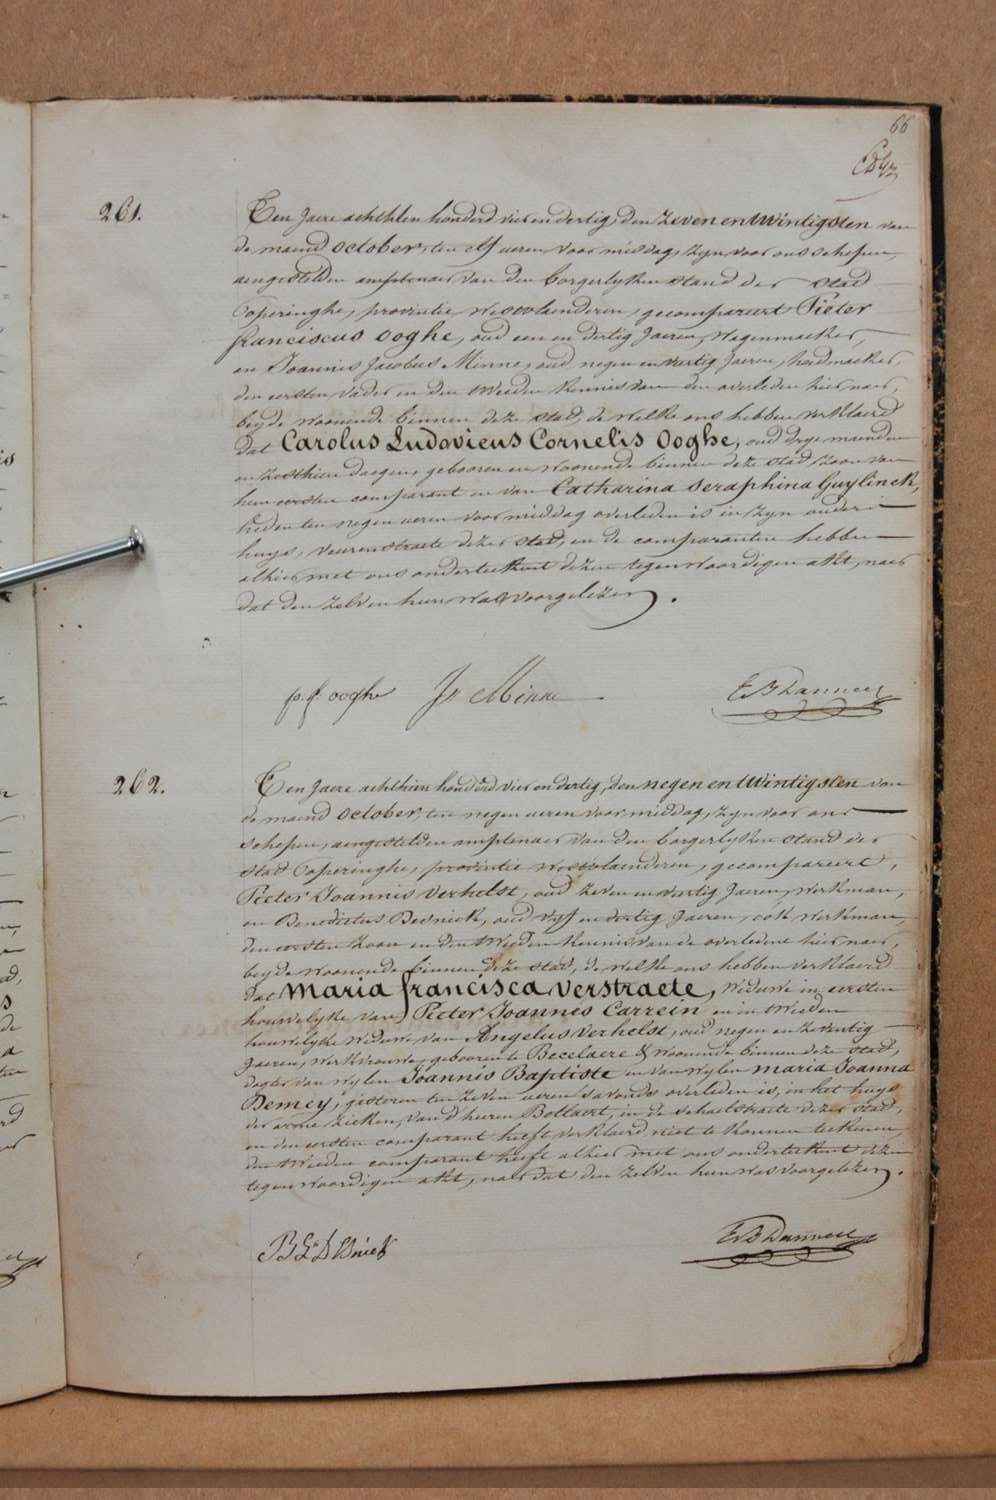 66
261.
Ten Jaere achthien honderd vier en dertig, den zeven en twintigsten van
de maend october, ten elf ueren voor middag, zyn voor ons schepen,
aengestelden amptenaer van den borgerlyken stand der stad
Poperinghe, provintie westvlaenderen, gecompareert Pieter
franciscus ooghe, oud een en dertig Jaeren, wagenmaeker,
en Joannis Jacobus Minne, oud negen en veertig Jaeren, hoedmaeker,
den eersten vader en den tweeden kennis van den overleden hier naer,
beyde woonende binnen deze stad, de welke ons hebben verklaerd
dat Carolus Ludovicus Cornelis Ooghe, oud drye maenden
en zesthien daegen, gebooren en woonende binnen deze stad, zoon van
hun eersten comparant en van Catharina Seraphina Guylinck,
heden ten negen ueren voor middag overleden is in zyn ouders
huys, veurenstraete dezer stad, en de comparanten hebben
alhier met ons onderteekent dezen tegenwoordigen akt, naer
dat den zelven hun was voorgelezen.
p. f. ooghe Js Minne E B Danneel
262.
Ten Jaere achthien honderd vier en dertig, den negen en twintigsten van
de maend october, ten negen ueren voor middag, zyn voor ons
schepen, aengestelden amptenaer van den borgerlyken stand der
stad Poperinghe, provintie westvlaenderen, gecompareert,
Pieter Joannis Verhelst, oud zeven en veertig Jaeren, werkman,
en Benedictus Devnick, oud vyf en dertig Jaeren, ook werkman,
den eersten zoon en den tweeden kennis van de overledene hier naer,
beyde woonende binnen deze stad, de welke ons hebben verklaerd
dat Maria francisca verstraete, weduwe in eersten
houwelyke van Pieter Joannis Carrein en in tweeden
houwelyke weduwe van Angelus Verhelst, oud negen en zeventig
Jaeren, werkvrouwe, gebooren te Becelaere & woonende binnen deze stad,
dogter van wylen Joannis Baptiste en van wylen maria Joanna
Demey, gisteren ten zeven ueren s'avonds overleden is, in het huys
der arme zieken, van d'heeren Bollaert, in de schaelstraete dezer stad,
en den eersten comparant heeft verklaerd niet te konnen teekenen,
den tweeden comparant heeft alhier met ons onderteekent dezen
tegenwoordigen akt, naer dat den zelven hun was voorgelezen.
E B Danneel